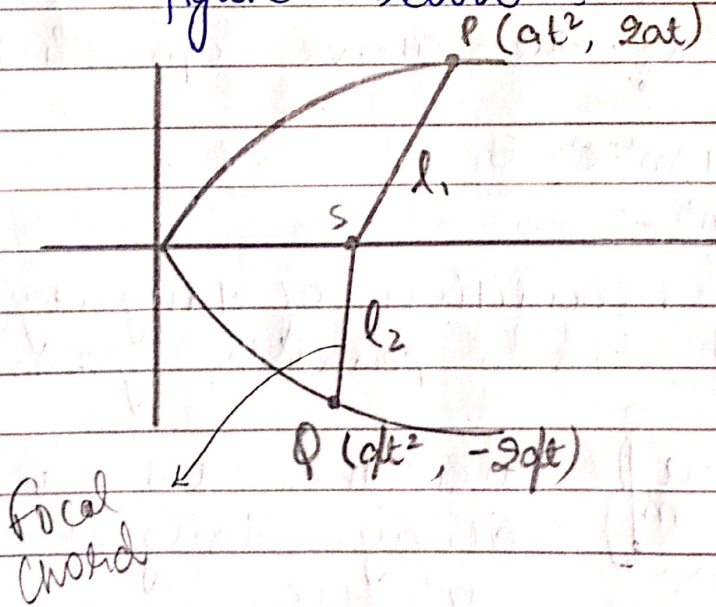 P (at², 2at)
l₁
S
l₂
Q (a/t², -2a/t)
Focal
Chord